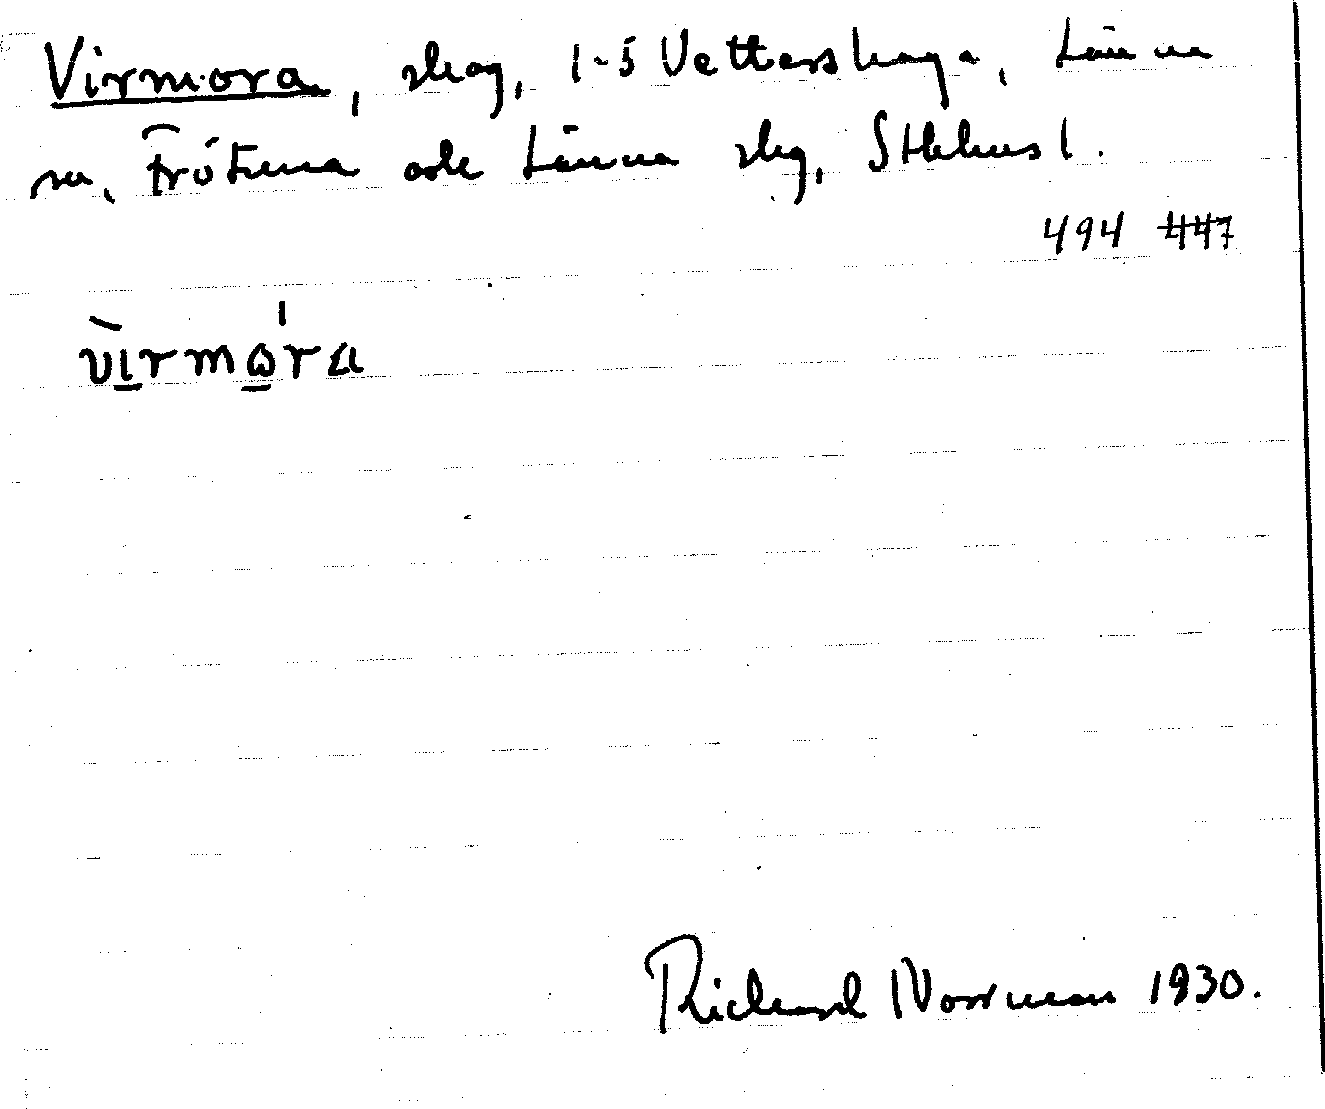 Virmora, skog, 1-5 Vettershaga, Länna
sn, Frötuna och Länna skg, Sthlms l.
494 447
vìrmọ́ra
Richard Norrman 1930.